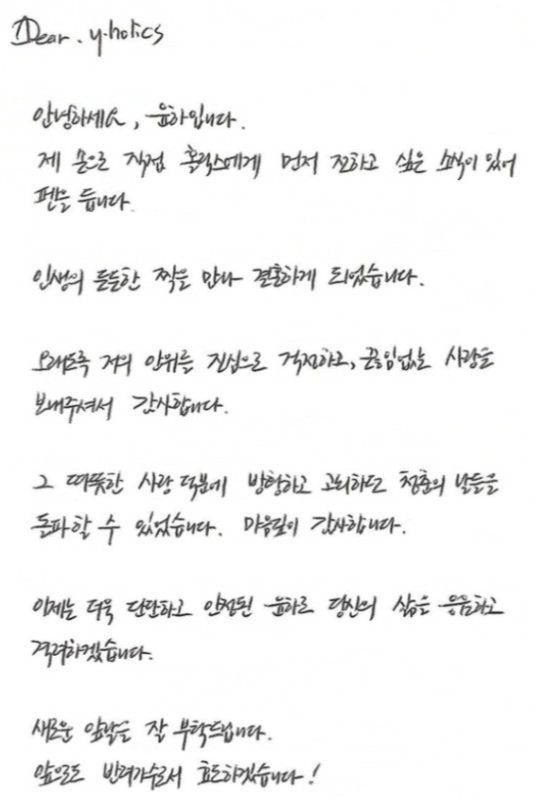 Dear. y.holics
안녕하세요, 윤하입니다.
제 손으로 직접 홀릭스에게 먼저 전하고 싶은 소식이 있어
펜을 듭니다.
인생의 든든한 짝을 만나 결혼하게 되었습니다.
오래도록 저의 안위를 진심으로 걱정하고, 끊임없는 사랑을
보내주셔서 감사합니다.
그 따뜻한 사랑 덕분에 방황하고 고뇌하던 청춘의 날들을
돌파할 수 있었습니다. 마음깊이 감사합니다.
이제는 더욱 단단하고 안정된 윤하로 당신의 삶을 응원하고
격려하겠습니다.
새로운 앞날을 잘 부탁드립니다.
앞으로도 반려가수로서 효도하겠습니다!